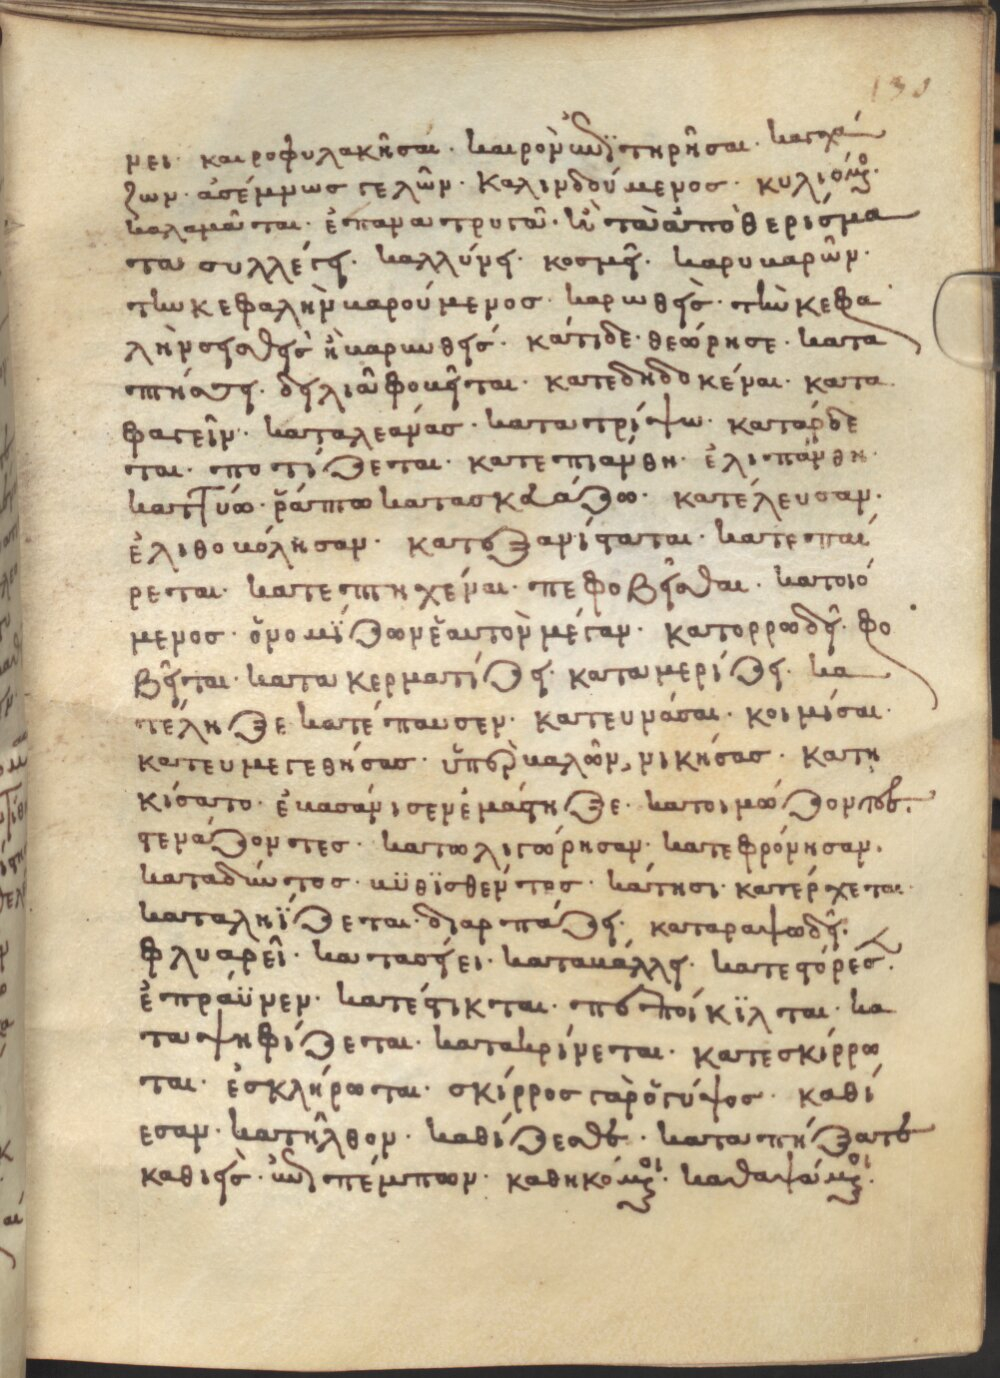 130
νει· καιροφυλακῆσαι· καιρὸν ἐπιτηρῆσαι· καγχά
ζων· ἀσέμνως γελῶν· καλινδούμενος· κυλιόμενος·
καλαμᾶται· ἐπαναστρυγᾶ· ἢ τὰ ἀπὸ θερίσμα
τα συλλέγει· καλλύνει· κοσμεῖ· καρυκαρῶν·
τὴν κεφαλὴν καρούμενος· καρωθεὶς· τὴν κεφα
λὴν σεισθεὶς ἢ καρωθείς· κάτιδε· θεώρησε· κατα
πτήσσει· δειλιᾶ φοβεῖται· κατεδηδοκέναι· κατα
φαγεῖν· καταλεάνας· καταστρίψω· κατάρδε
ται· ποτίζεται· κατεπιάνθη· ἐλιπάνθη·
καττύω· ῥάπτω κατασκευάζω· κατέλευσαν·
ἐλιθοκόλησαν· κατεξανίσταται· κατεπαί
ρεται· κατεπτηχέναι· πεφοβεῖσθαι· κατοιό
μενος· ὁ νομΐζων ἑαυτὸν μέγαν· κατορρωδεῖ· φο
βεῖται· κατακερματίζει· καταμερίζει· κα
τέληξε κατέπαυσεν· κατευνάσαι· κοιμίσαι·
κατευμεγεθήσας· ὑπὲρ καλῶν, νικήσας· κατη
κίσατο· ἐβασάνισεν ἐμάστιξε· κατοιμώζοντες·
στενάζοντες· κατωλιγώρησαν· κατεφρόνησαν·
καταδύντος· κϋθϊσθέντος· κάτησι· κατέρχεται·
καταληΐζεται· διαρπάζει· καταραψωδεῖ·
φλυαρεῖ· καταστείει· κατακάλλει· κατεστόρεσεν·
ἐπράϋνεν· κατέστικται· πεποίκϊλται· κα
ταψηφίζεται· κατακρίνεται· κατεσκίρρω
ται· ἐσκλήρωται· σκίρρος γὰρ ὁ γύψος· καθί
εσαν· κατῆλθον· καθίζεσθε· καταπήξατε
καθιεὶς· ἐπιπέμπων· καθηκόμενοι· καθαψάμενοι·